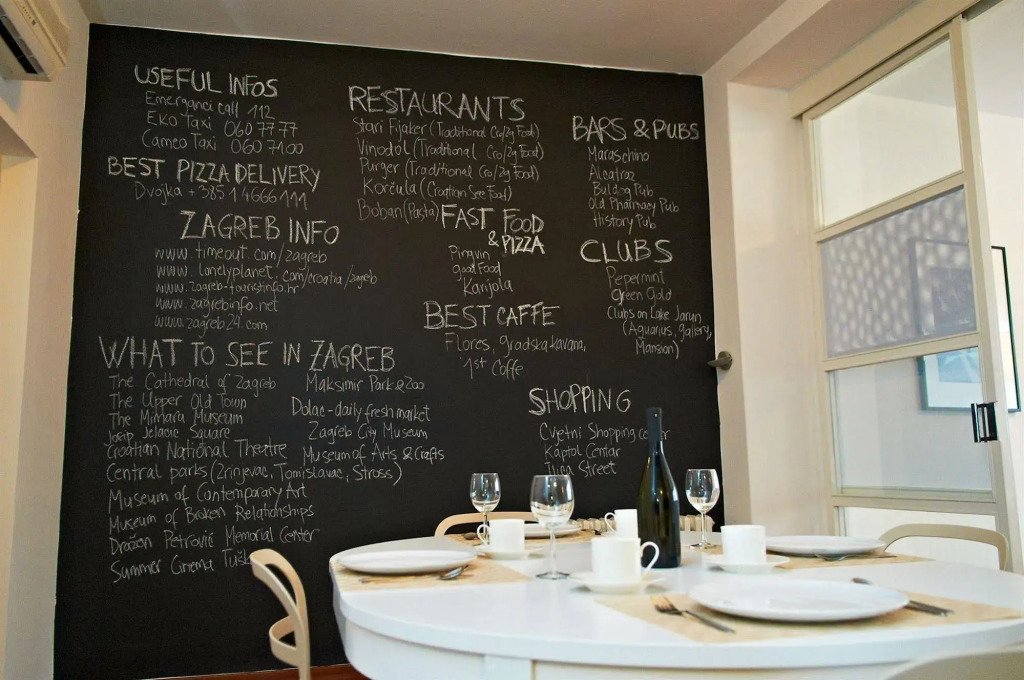 USEFUL INFOS
Emerganci call 112
Eko Taxi 060 77 77
Cameo Taxi 060 7100
BEST PIZZA DELIVERY
Dvojka +385 1 4666 111
ZAGREB INFO
www.timeout.com/zagreb
www.lonelyplanet.com/croatia/zagreb
www.zagreb-touristinfo.hr
www.zagrebinfo.net
www.zagreb24.com
WHAT TO SEE IN ZAGREB
The Cathedral of Zagreb
The Upper Old Town
The Mimara Museum
Josip Jelacic Square
Croatian National Theatre
Central parks (Zrinjevac, Tomislavac, Stross)
Museum of Contemporary Art
Museum of Broken Relationships
Dražen Petrović Memorial Center
Summer Cinema Tušk
Maksimir Park & Zoo
Dolac - daily fresh market
Zagreb City Museum
Museum of Arts & Crafts
RESTAURANTS
Stari Fijaker (Traditional Cro/Zg Food)
Vinodol (Traditional Cro/Zg Food)
Purger (Traditional Cro/Zg Food)
Korčula (Croatian See Food)
Boban (Pasta)
FAST FOOD
& PIZZA
Pingvin
good Food
Karijola
BEST CAFFE
Flores, gradska kavana,
1st Coffe
BARS & PUBS
Maraschino
Alcatraz
Buldog Pub
Old Pharmacy Pub
History Pub
CLUBS
Pepermint
Green Gold
Clubs on Lake Jarun
(Aquarius, gallery,
Mansion)
SHOPPING
Cvjetni Shopping center
Kaptol Centar
Ilica Street